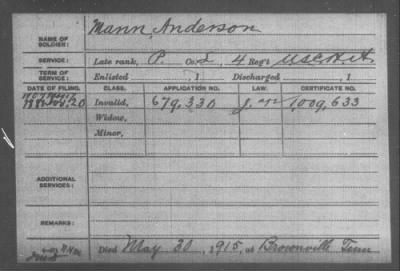 NAME OF SOLDIER: Mann, Anderson
SERVICE: Late rank, P. Co. L, 4 Reg't U.S.C.H.A.
TERM OF SERVICE: Enlisted , 1 Discharged , 1
DATE OF FILING. CLASS. APPLICATION NO. LAW. CERTIFICATE NO.
20 Invalid, 679,330 1,009,633
Widow,
Minor,
ADDITIONAL SERVICES:
REMARKS:
Died May 30, 1915, at Brownville Tenn